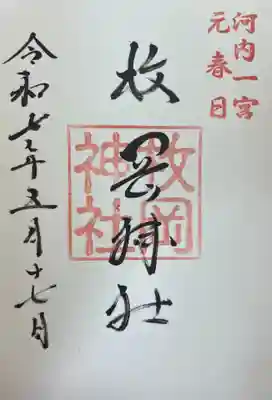 河内一宮
元春日
枚岡神社
枚岡
神社
令和七年五月十七日